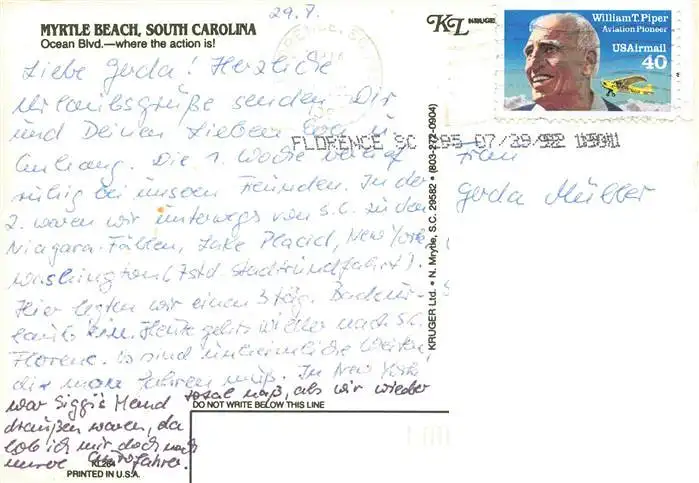 29.7.
MYRTLE BEACH, SOUTH CAROLINA
Ocean Blvd.—where the action is!
Liebe Gerda! Herzliche
Urlaubsgrüße senden Dir
und Deinen Lieben
Anhang. Die 1. Woche verlief
ruhig bei unseren Freunden. In der
2. waren wir unterwegs von S.C. zu den
Niagara-Fällen, Lake Placid, New York
Washington (7std Stadtrundfahrt).
Hier legten wir einen 3täg. Badeur-
laub ein. Heute gehts wieder nach S.C.
Florenc. Es sind unheimliche Weiten,
die man fahren muß. In New York
war Siggis Hemd total naß, als wir wieder
draußen waren, da
lob ich mir doch noch
unsre fahrer.
DO NOT WRITE BELOW THIS LINE
KL264
PRINTED IN U.S.A.
KRUGER Ltd. • N. Myrtle, S.C. 29582 • (803-272-0904)
KL KRUGER
William T. Piper
Aviation Pioneer
USAirmail
40
FLORENCE SC 295 07/29/92
Frau
Gerda Müller